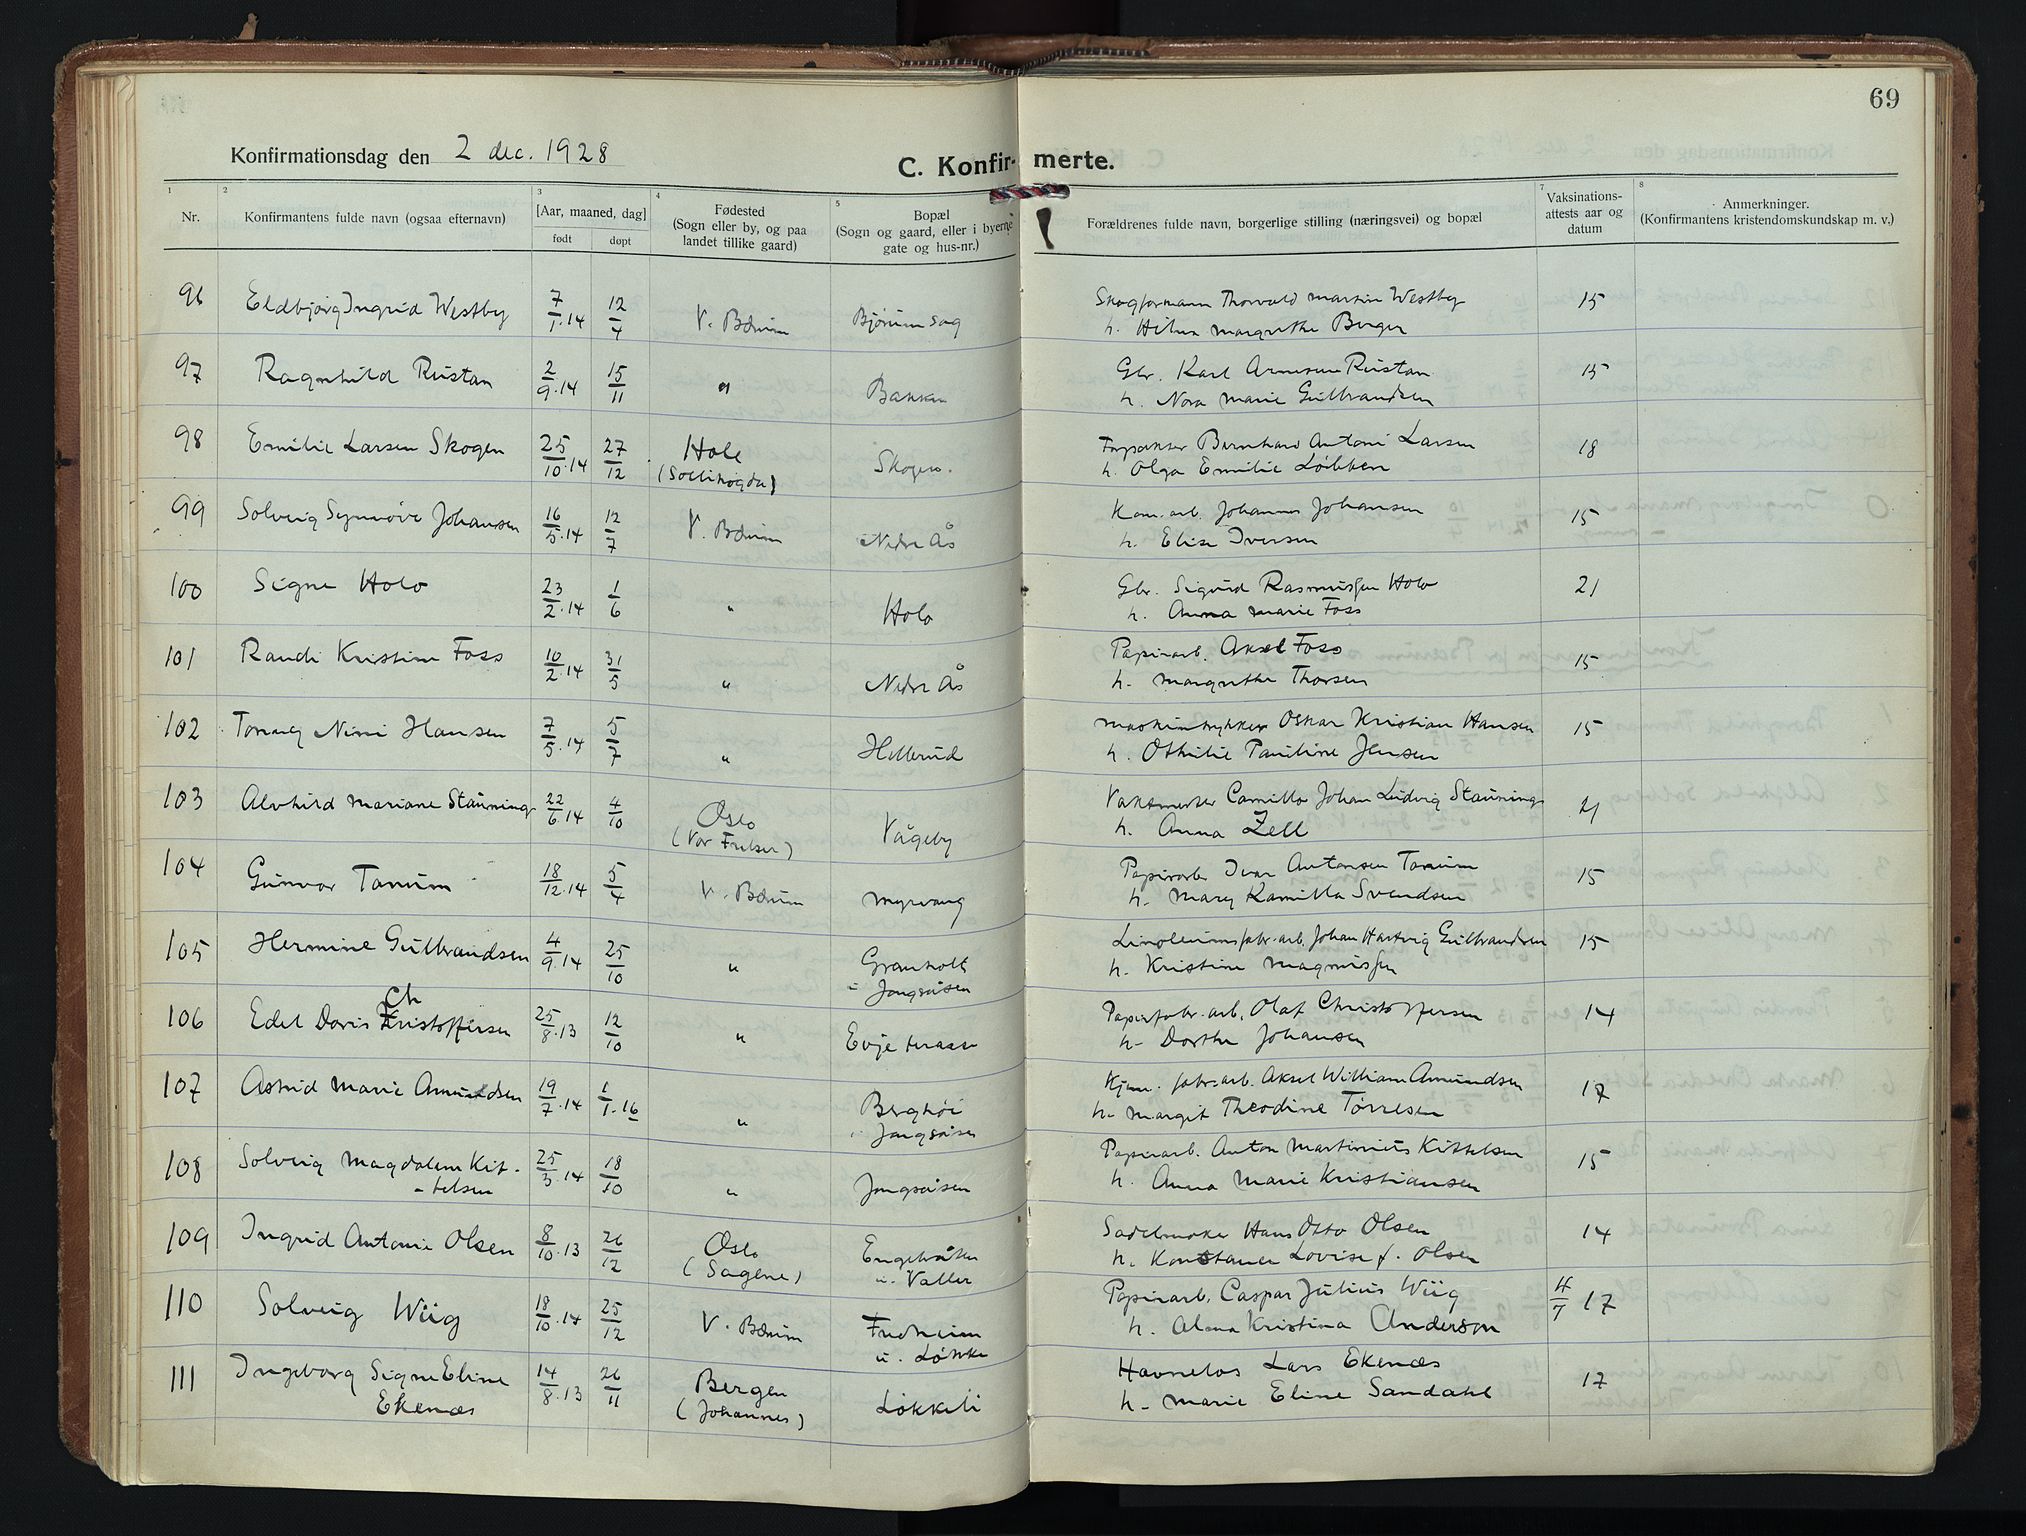 69
Konfirmationsdag den 2 dec. 1928
C. Konfirmerte.
1 2 3 4 5 7 8
Nr.
Konfirmantens fulde navn (ogsaa efternavn)
[Aar, maaned, dag]
født døpt
Fødested
(Sogn eller by, og paa
landet tillike gaard)
Bopæl
(Sogn og gaard, eller i byerne
gate og hus-nr.)
Forældrenes fulde navn, borgerlige stilling (næringsvei) og bopæl
Vaksinations-
attests aar og
datum
Anmerkninger.
(Konfirmantens kristendomskundskap m. v.)
96 Eldbjørg Ingrid Westby 7/1.14 12/4 V. Bærum Bjørum sag Skogformann Thorvald Martin Westby 15
h. Hilma Margrethe Berger
97 Ragnhild Rustan 2/9.14 15/11 " Bakken Gbr. Karl Arnesen Rustan 15
h. Nora Marie Gulbrandsen
98 Emilie Larsen Skogen 25/10.14 27/12 Hole Skogen. Forpakter Bernhard Antoni Larsen 18
(Sollihøgda) h. Olga Emilie Løkken
99 Solveig Synnøve Johansen 16/5.14 12/7 V. Bærum Nedre Ås Kom. arb. Johannes Johansen 15
h. Elise Iversen
100 Signe Holo 23/2.14 1/6 " Holo Gbr. Sigurd Rasmussen Holo 21
h. Anna Marie Foss
101 Randi Kristine Foss 10/2.14 31/5 " Nedre Ås Papirarb. Aksel Foss 15
h. Margrethe Thorsen
102 Tonny Nini Hansen 7/5.14 5/7 " Hellerud Maskintrykker Oskar Kristian Hansen 15
h. Othilie Pauline Jensen
103 Alvhild Mariane Stauning 22/6.14 4/10 Oslo Vågeby Vaktmester Camillo Johan Ludvig Stauning 21
(Vor Frelser) h. Anna Zell
104 Gunvor Tanum 18/12.14 5/4 V. Bærum Myrvang Papirarb Ivar Antonsen Tanum 15
h. Mary Kamilla Svendsen
105 Hermine Gulbrandsen 4/9.14 25/10 " Granholt Linoleumsfabr. arb. Johan Hartvig Gulbrandsen 15
u Jongsåsen h. Kristine Magnussen
106 Edel Doris Christoffersen 25/8.13 12/10 " Evje terasse Papirfabr. arb. Olaf Christoffersen 14
h. Dorthe Johansen
107 Astrid Marie Amundsen 19/7.14 1/1.16 " Berghøi Kjem. fabr. arb. Aksel William Amundsen 17
Jongsåsen h. Margit Theodine Tørresen
108 Solveig Magdalene Kit- 25/3.14 18/10 " Jongsåsen Papirarb. Anton Martinius Kittelsen 15
-telsen h. Anna Marie Kristiansen
109 Ingrid Antonie Olsen 8/10.13 26/12 Oslo Engebråten Sadelmaker Hans Otto Olsen 14
(Sagene) u. Valler h. Konstance Lovise f. Olsen
110 Solveig Wiig 18/10.14 25/12 V. Bærum Fredheim Papirarb. Caspar Julius Wiig 17
u. Løkke h. Alma Kristina Anderson
111 Ingeborg Signe Eline 14/8.13 26/11 Bergen Løkkeli Havnelos Lars Ekenæs 17
Ekenæs (Johannes) h. Marie Eline Sandahl